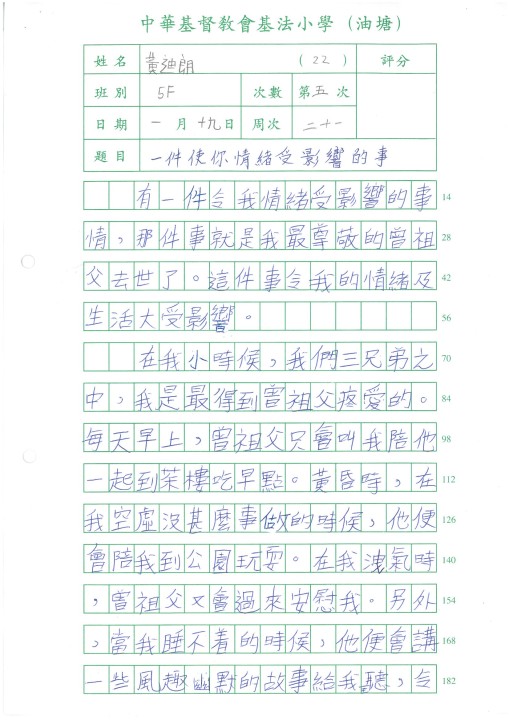 中華基督教會基法小學（油塘）
姓名 黃迪朗 (22) 評分
班別 5F 次數 第五次
日期 一月十九日 周次 二十一
題目 一件使你情緒受影響的事
有一件令我情緒受影響的事 14
情，那件事就是我最尊敬的曾祖 28
父去世了。這件事令我的情緒及 42
生活大受影響。 56
在我小時候，我們三兄弟之 70
中，我是最得到曾祖父疼愛的。 84
每天早上，曾祖父只會叫我陪他 98
一起到茶樓吃早點。黃昏時，在 112
我空虛沒甚麼事做的時候，他便 126
會陪我到公園玩耍。在我洩氣時 140
，曾祖父又會過來安慰我。另外 154
，當我睡不着的時候，他便會講 168
一些風趣幽默的故事給我聽，令 182